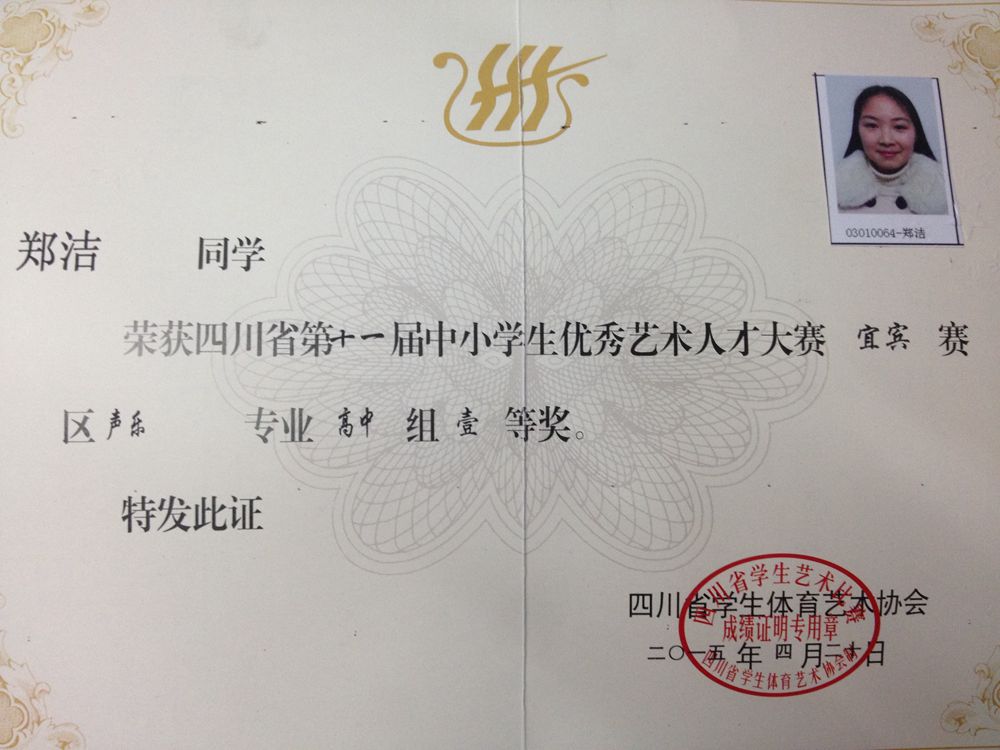 03010064-郑洁
郑洁 同学
荣获四川省第十一届中小学生优秀艺术人才大赛 宜宾 赛
区 声乐 专业 高中 组 壹 等奖。
特发此证
四川省学生体育艺术协会
二〇一五年四月二十日
四川省学生艺术比赛
成绩证明专用章
四川省学生体育艺术协会制